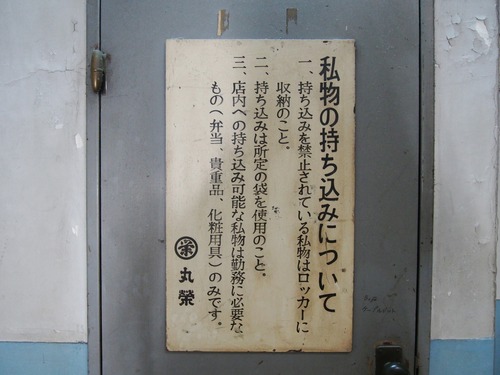 私物の持ち込みについて
一、持ち込みを禁止されている私物はロッカーに
収納のこと。
二、持ち込みは所定の袋を使用のこと。
三、店内への持ち込み可能な私物は勤務に必要な
もの（弁当、貴重品、化粧用具）のみです。
栄 丸榮